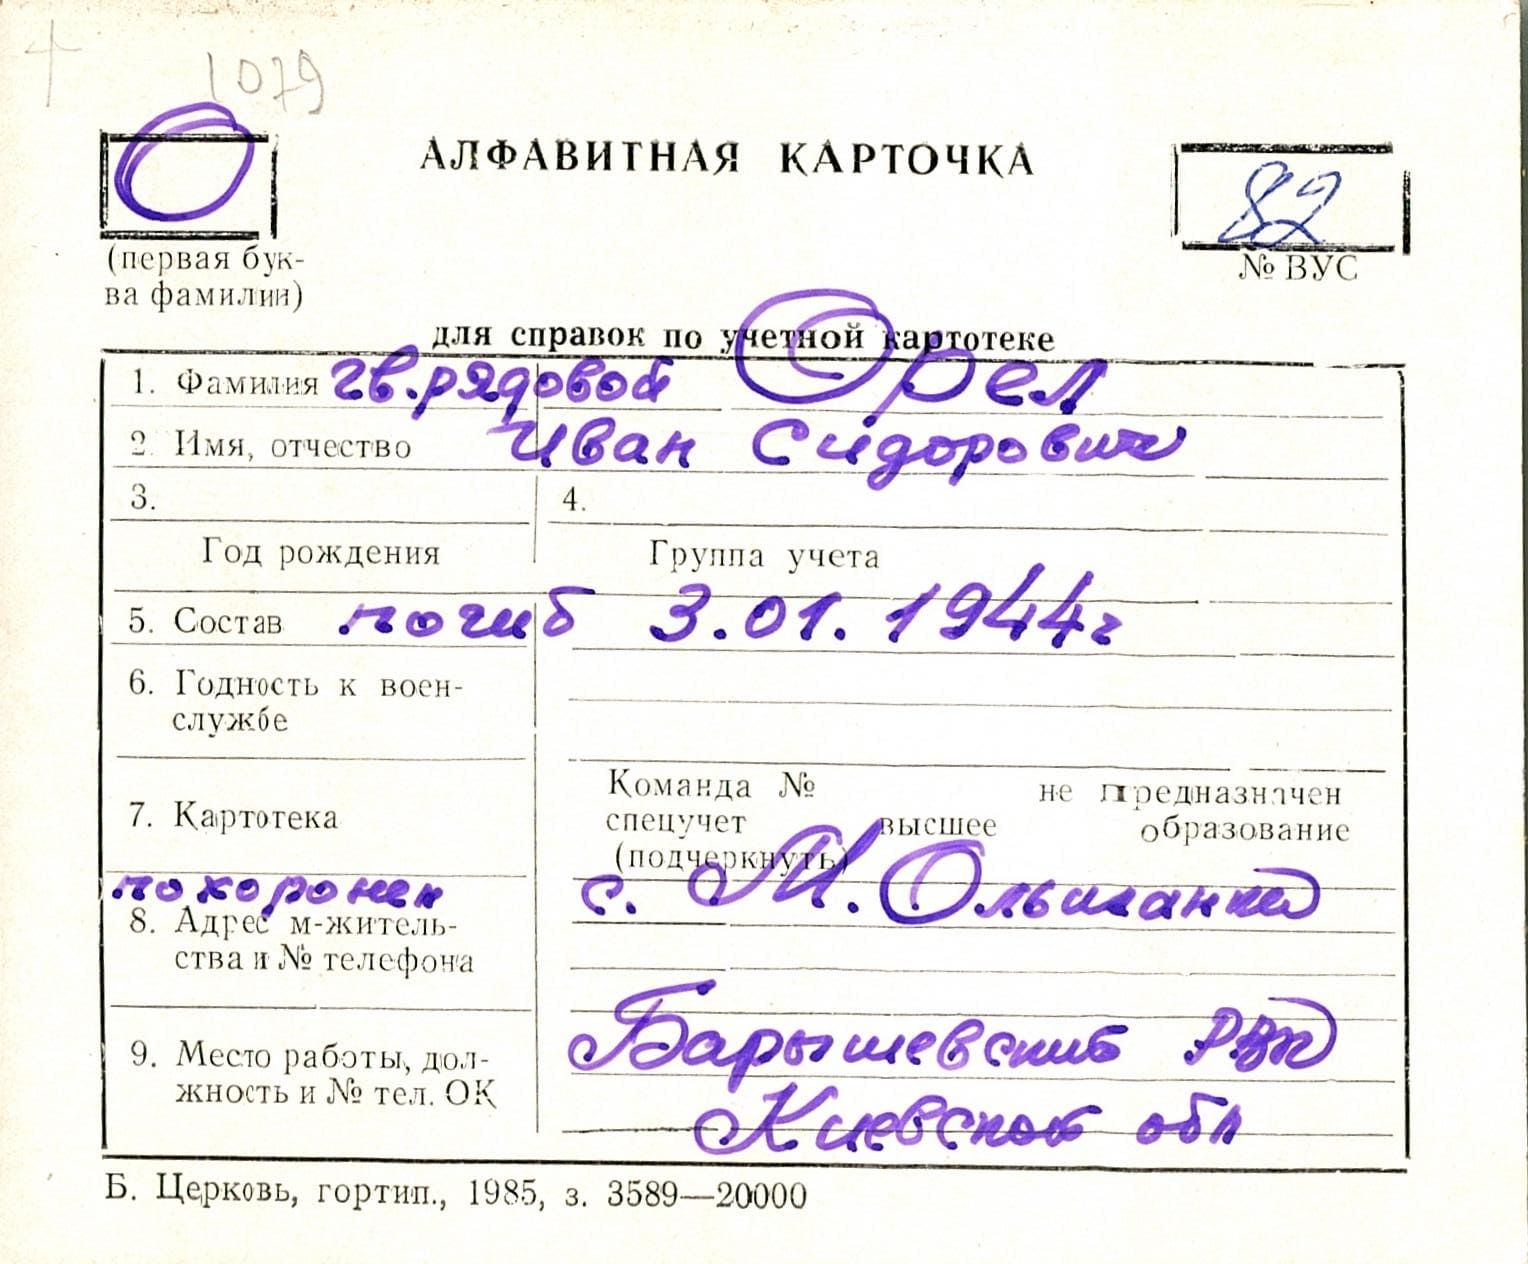 1079
О
АЛФАВИТНАЯ КАРТОЧКА
82
(первая бук-
ва фамилии)
№ ВУС
для справок по учетной картотеке
1. Фамилия гв. рядовой Орел
2. Имя, отчество Иван Сидорович
3. 4.
Год рождения Группа учета
5. Состав погиб 3.01.1944г
6. Годность к воен-
службе
7. Картотека
Команда № не предназначен
спецучет высшее образование
(подчеркнуть)
похоронен с. М. Ольшанка
8. Адрес м-житель-
ства и № телефона
Барышевский РВК
9. Место работы, дол-
жность и № тел. ОК
Киевской обл
Б. Церковь, гортип., 1985, з. 3589—20000